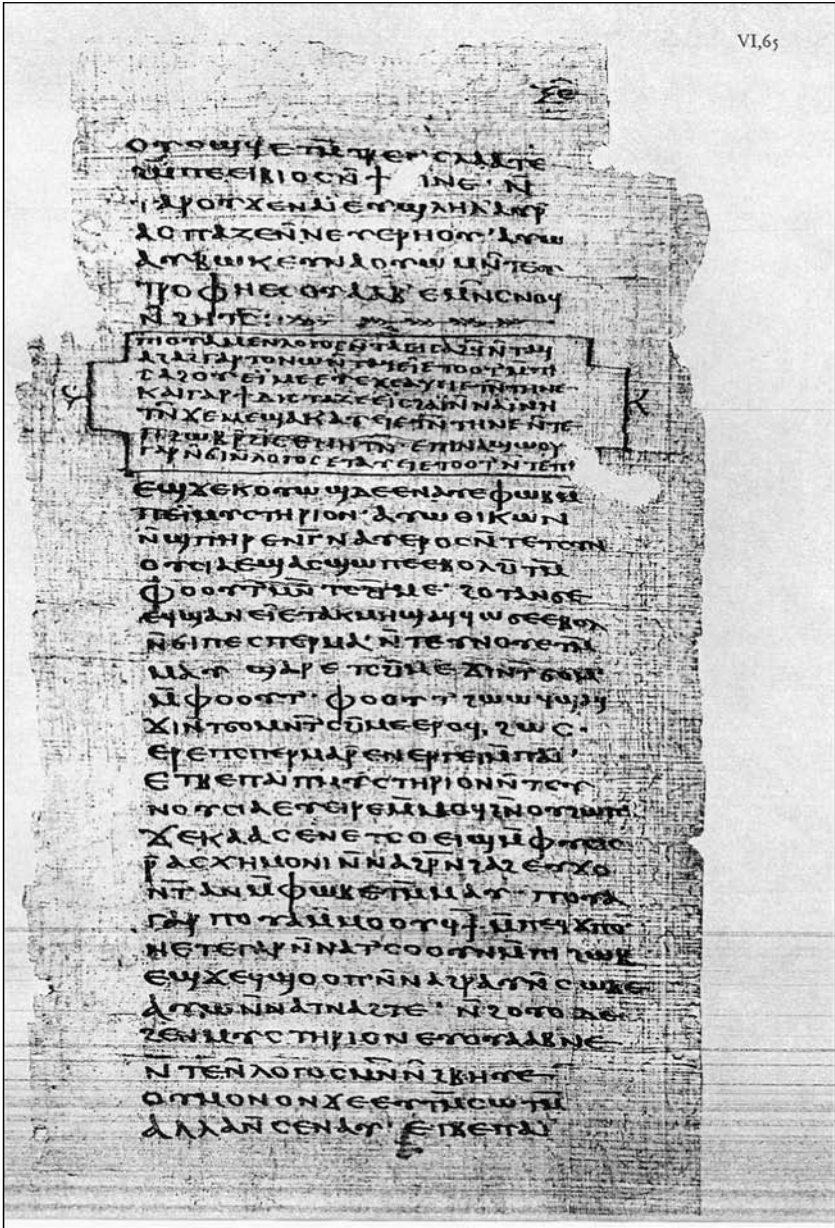 ⲝ̄ⲉ̄
ⲟⲩⲟϣϥ ⲉⲧⲙ̄ⲧⲣⲉⲛⲥⲗⲁⲁⲧⲉ
ϩⲙ̄ⲡⲉⲉⲓⲃⲓⲟⲥ ⲛ̄ϯ ⲓⲛⲉ· ⲛ̄
ⲧⲁⲣⲟⲩϫⲉⲛⲁⲓ̈ ⲉⲩϣⲗⲏⲗ ⲁⲩⲣ̄
ⲁⲥⲡⲁⲍⲉ ⲛ̄ⲛⲉⲩⲉⲣⲏⲟⲩ· ⲁⲩⲱ
ⲁⲩⲃⲱⲕ ⲉⲩⲛⲁⲟⲩⲱⲙ ⲛ̄ⲧⲉⲩ
ⲧⲣⲟⲫⲏ ⲉⲥⲟⲩⲁⲁⲃ ⲉⲙⲛ̄ⲥⲛⲟϥ
ⲛ̄ϩⲏⲧⲥ̄:
ⲡⲓⲟⲩⲁ ⲙⲉⲛ ⲛ̄ⲗⲟⲅⲟⲥ ⲛ̄ⲧⲁⲉⲓⲥⲁϩϥ̄ ⲛ̄ⲧⲁϥ
ⲁϩⲁϩ ⲅⲁⲣ ⲧⲟⲛⲱ ⲛ̄ⲧⲁϥ ⲉⲓ ⲉⲧⲟⲟⲧ ⲙ̄ⲡⲓ
ⲥⲁϩⲟⲩ ⲉⲓⲙⲉⲉⲩⲉ ϫⲉ ⲁⲩⲉⲓ ⲉⲧⲛ̄ⲧⲏⲛⲉ·
ⲕⲁⲓ ⲅⲁⲣ ϯⲇⲓⲥⲧⲁⲍⲉ ⲉⲓⲥϩⲁⲓ̈ ⲛ̄ⲛⲁⲓ̈ ⲛⲏ
ⲧⲛ̄ ϫⲉ ⲙⲉϣⲁⲕ ⲁⲩⲉⲓ ⲉⲧⲛ̄ⲧⲏⲛⲉ ⲛ̄ⲧⲉ
ⲡϩⲱⲃ ⲣ̄ϩⲓⲥⲉ ⲛⲏⲧⲛ̄· ⲉⲡⲓ ⲛⲁϣⲱⲟⲩ
ⲅⲁⲣ ⲛ̄ϭⲓ ⲛ̄ⲗⲟⲅⲟⲥ ⲉⲧⲁⲩⲉⲓ ⲉⲧⲟⲟⲧ ⲛ̄ⲧⲉ ⲡⲓ
ⲉϣϫⲉ ⲕⲟⲩⲱϣ ⲇⲉ ⲉⲛⲁⲩ ⲉⲫⲱⲃ ⲙ̄
ⲡⲉⲓⲙⲩⲥⲧⲏⲣⲓⲟⲛ· ⲁⲩⲱ ⲑⲓⲕⲱⲛ
ⲛ̄ϣⲡⲏⲣⲉ ⲛⲅ̄ⲛⲁⲩ ⲉⲣⲟⲥ ⲛ̄ⲧⲉⲧⲥⲩⲛ
ⲟⲩⲥⲓⲁ ⲉϣⲁⲥϣⲱⲡⲉ ⲉⲃⲟⲗ ϩⲓⲧⲙ̄
ⲫⲟⲟⲩⲧ ⲙⲛ̄ ⲧⲥϩⲓⲙⲉ· ϩⲟⲧⲁⲛ ϭⲉ
ⲉϥϣⲁⲛⲉⲓ ⲉⲧⲁⲕⲙⲏ ϣⲁϥϥⲱϭⲉ ⲉⲃⲟⲗ
ⲛ̄ϭⲓ ⲡⲉⲥⲡⲉⲣⲙⲁ· ⲛ̄ⲧⲉⲩⲛⲟⲩ ⲉⲧⲙ̄
ⲙⲁⲩ ϣⲁⲣⲉ ⲧⲥϩⲓⲙⲉ ϫⲓ ⲛ̄ⲧϭⲟⲙ·
ⲙ̄ⲫⲟⲟⲩⲧ· ⲫⲟⲟⲩⲧ ϩⲱⲱϥ ϣⲁϥ
ϫⲓ ⲛ̄ⲧϭⲟⲙ ⲛ̄ⲧⲥϩⲓⲙⲉ ⲉⲣⲟϥ, ϩⲱⲥ·
ⲉⲣⲉ ⲡⲥⲡⲉⲣⲙⲁ ⲣⲉⲛⲉⲣⲅⲉⲓ ⲙ̄ⲡⲁⲓ̈·
ⲉⲧⲃⲉ ⲡⲁⲓ̈ ⲡⲙⲩⲥⲧⲏⲣⲓⲟⲛ ⲛ̄ⲧⲥⲩ
ⲛⲟⲩⲥⲓⲁ ⲉⲩⲉⲓⲣⲉ ⲙ̄ⲙⲟϥ ϩⲛ̄ ⲟⲩϩⲱⲡ
ϫⲉⲕⲁⲁⲥ ⲉⲛⲉⲧⲥⲟⲉⲓϣ ⲙ̄ⲫⲩⲥⲓⲥ
ⲣ̄ⲁⲥⲭⲏⲙⲟⲛⲓ ⲛ̄ⲛⲁϩⲣⲛ̄ ϩⲁϩ ⲉⲩϫⲟ
ⲛ̄ⲧ ⲁⲛ ⲙ̄ⲫⲱⲃ ⲉⲧⲙ̄ⲙⲁⲩ· ⲡⲟⲩⲁ
ⲅⲁⲣ ⲡⲟⲩⲁ ⲙ̄ⲙⲟⲟⲩ ϥϯ ⲙ̄ⲡⲉϥϫⲡⲟ
ⲛⲉⲧⲉ ⲅⲁⲣ ⲛ̄ⲛⲁⲧⲥⲟⲟⲩⲛ ⲙ̄ⲡⲓϩⲱⲃ
ⲉϣϫⲉ ⲉϥϣⲟⲟⲡ ⲛ̄ⲛⲁϩⲣⲁⲩ ⲛ̄ⲥⲱⲃⲉ
ⲁⲩⲱ ⲛ̄ⲛⲁⲧⲛⲁϩⲧⲉ· ⲛ̄ϩⲟⲩⲟ ⲇⲉ
ϩⲉⲛⲙⲩⲥⲧⲏⲣⲓⲟⲛ ⲉⲩⲟⲩⲁⲁⲃ ⲛⲉ
ⲛ̄ⲧⲉ ⲛ̄ⲗⲟⲅⲟⲥ ⲙⲛ̄ ⲛ̄ϩⲃⲏⲩⲉ
ⲟⲩ ⲙⲟⲛⲟⲛ ϫⲉ ⲉⲩⲧⲙ̄ⲥⲱⲧⲙ̄
ⲁⲗⲗⲁ ⲛ̄ⲥⲉⲛⲁⲩ· ⲉⲧⲃⲉ ⲡⲁⲓ̈
VI,65